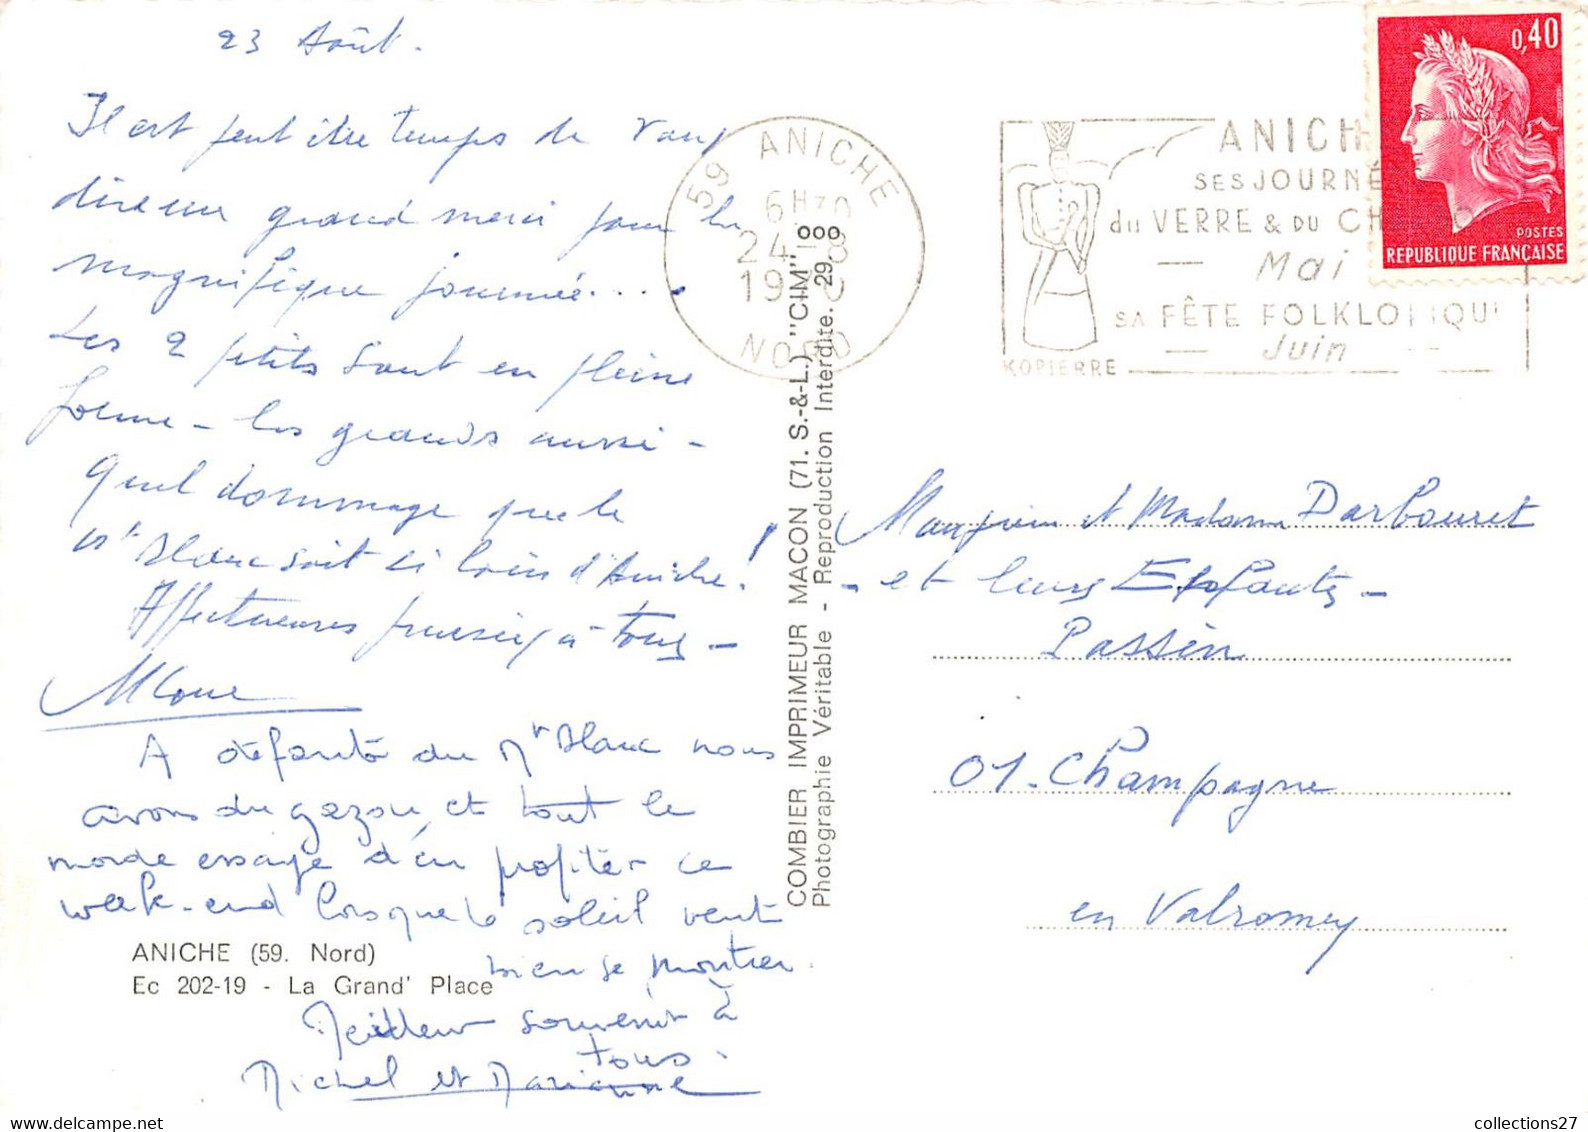 23 Août.
Il est peut être temps de vous
dire un grand merci pour la
magnifique journée....
Les 2 petits sont en pleine
forme - les grands aussi -
Quel dommage que le
Mt Blanc soit si loin d'Aniche!
Affectueuses pensées à tous -
A défaut du Mt Blanc nous
avons du gazon, et tout le
monde essaye d'en profiter ce
week-end lorsque le soleil veut
bien se montrer.
Meilleur souvenir à
tous.
Michel et Marianne
ANICHE (59. Nord)
Ec 202-19 - La Grand' Place
COMBIER IMPRIMEUR MACON (71. S.-&-L.) "CIM"
Photographie Véritable - Reproduction Interdite. 29
59 ANICHE
6H30
24 -8
19
NORD
ANICH
SES JOURNÉ
du VERRE & DU CH
Mai
SA FÊTE FOLKLORIQU
Juin
KOPIERRE
0,40
POSTES
REPUBLIQUE FRANÇAISE
Monsieur et Madame Darbouret
- et leurs Enfants -
Passin
01. Champagne
en Valromey
collections27